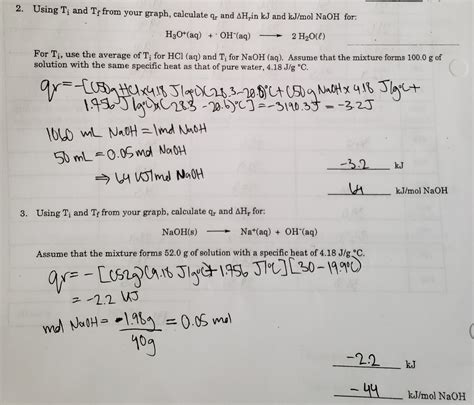 2. Using Ti and Tf from your graph, calculate qr and ΔHr in kJ and kJ/mol NaOH for:
H3O+(aq) + OH-(aq) ⟶ 2 H2O(ℓ)
For Ti, use the average of Ti for HCl (aq) and Ti for NaOH (aq). Assume that the mixture forms 100.0 g of
solution with the same specific heat as that of pure water, 4.18 J/g °C.
qr = -[(50g HCl x 4.18 J/g°C)(28.3-20.6)°C + (50g NaOH x 4.18 J/g°C +
1.956 J/g°C)(28.3 - 20.6)°C] = -3190.3J = -3.2J
1000 mL NaOH = 1mol NaOH
50 mL = 0.05mol NaOH
⇒ 64 kJ/mol NaOH
-3.2 kJ
64 kJ/mol NaOH
3. Using Ti and Tf from your graph, calculate qr and ΔHr for:
NaOH(s) ⟶ Na+(aq) + OH-(aq)
Assume that the mixture forms 52.0 g of solution with a specific heat of 4.18 J/g °C.
qr = -[(52g)(4.18 J/g°C + 1.956 J/°C][30-19.9°C)
= -2.2 kJ
mol NaOH = 1.98g / 40g = 0.05 mol
-2.2 kJ
-44 kJ/mol NaOH